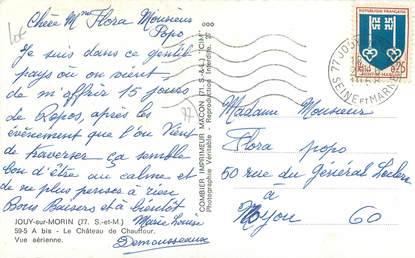 Chère Mme Flora Monsieur
Popo
Je suis dans ce gentil
pays où on vient
de m'offrir 15 jours
de Repos, après les
évènement que l'on vient de
traverser ça semble
bon d'être au calme et
de ne plus penser à rien
Bons Baisers et à bientôt
Marie Louise
Demousseaux
JOUY-sur-MORIN (77. S.-et-M.)
59-5 A bis - Le Château de Chauffour.
Vue aérienne.
COMBIER IMPRIMEUR MACON (71. S.-&-L.) "CIM"
Photographie Véritable - Reproduction Interdite.
REPUBLIQUE FRANÇAISE
0,25
MONT-DE-MARSAN
77 JOUY
SEINE ET MARNE
Madame Monsieur
Flora popo
60 rue du Général Leclerc
à
Noyon 60